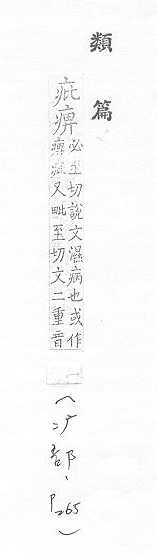 類篇
疪痹
必至切說文濕病也或作
又毗至切文二重音
一
(疒部、P265)